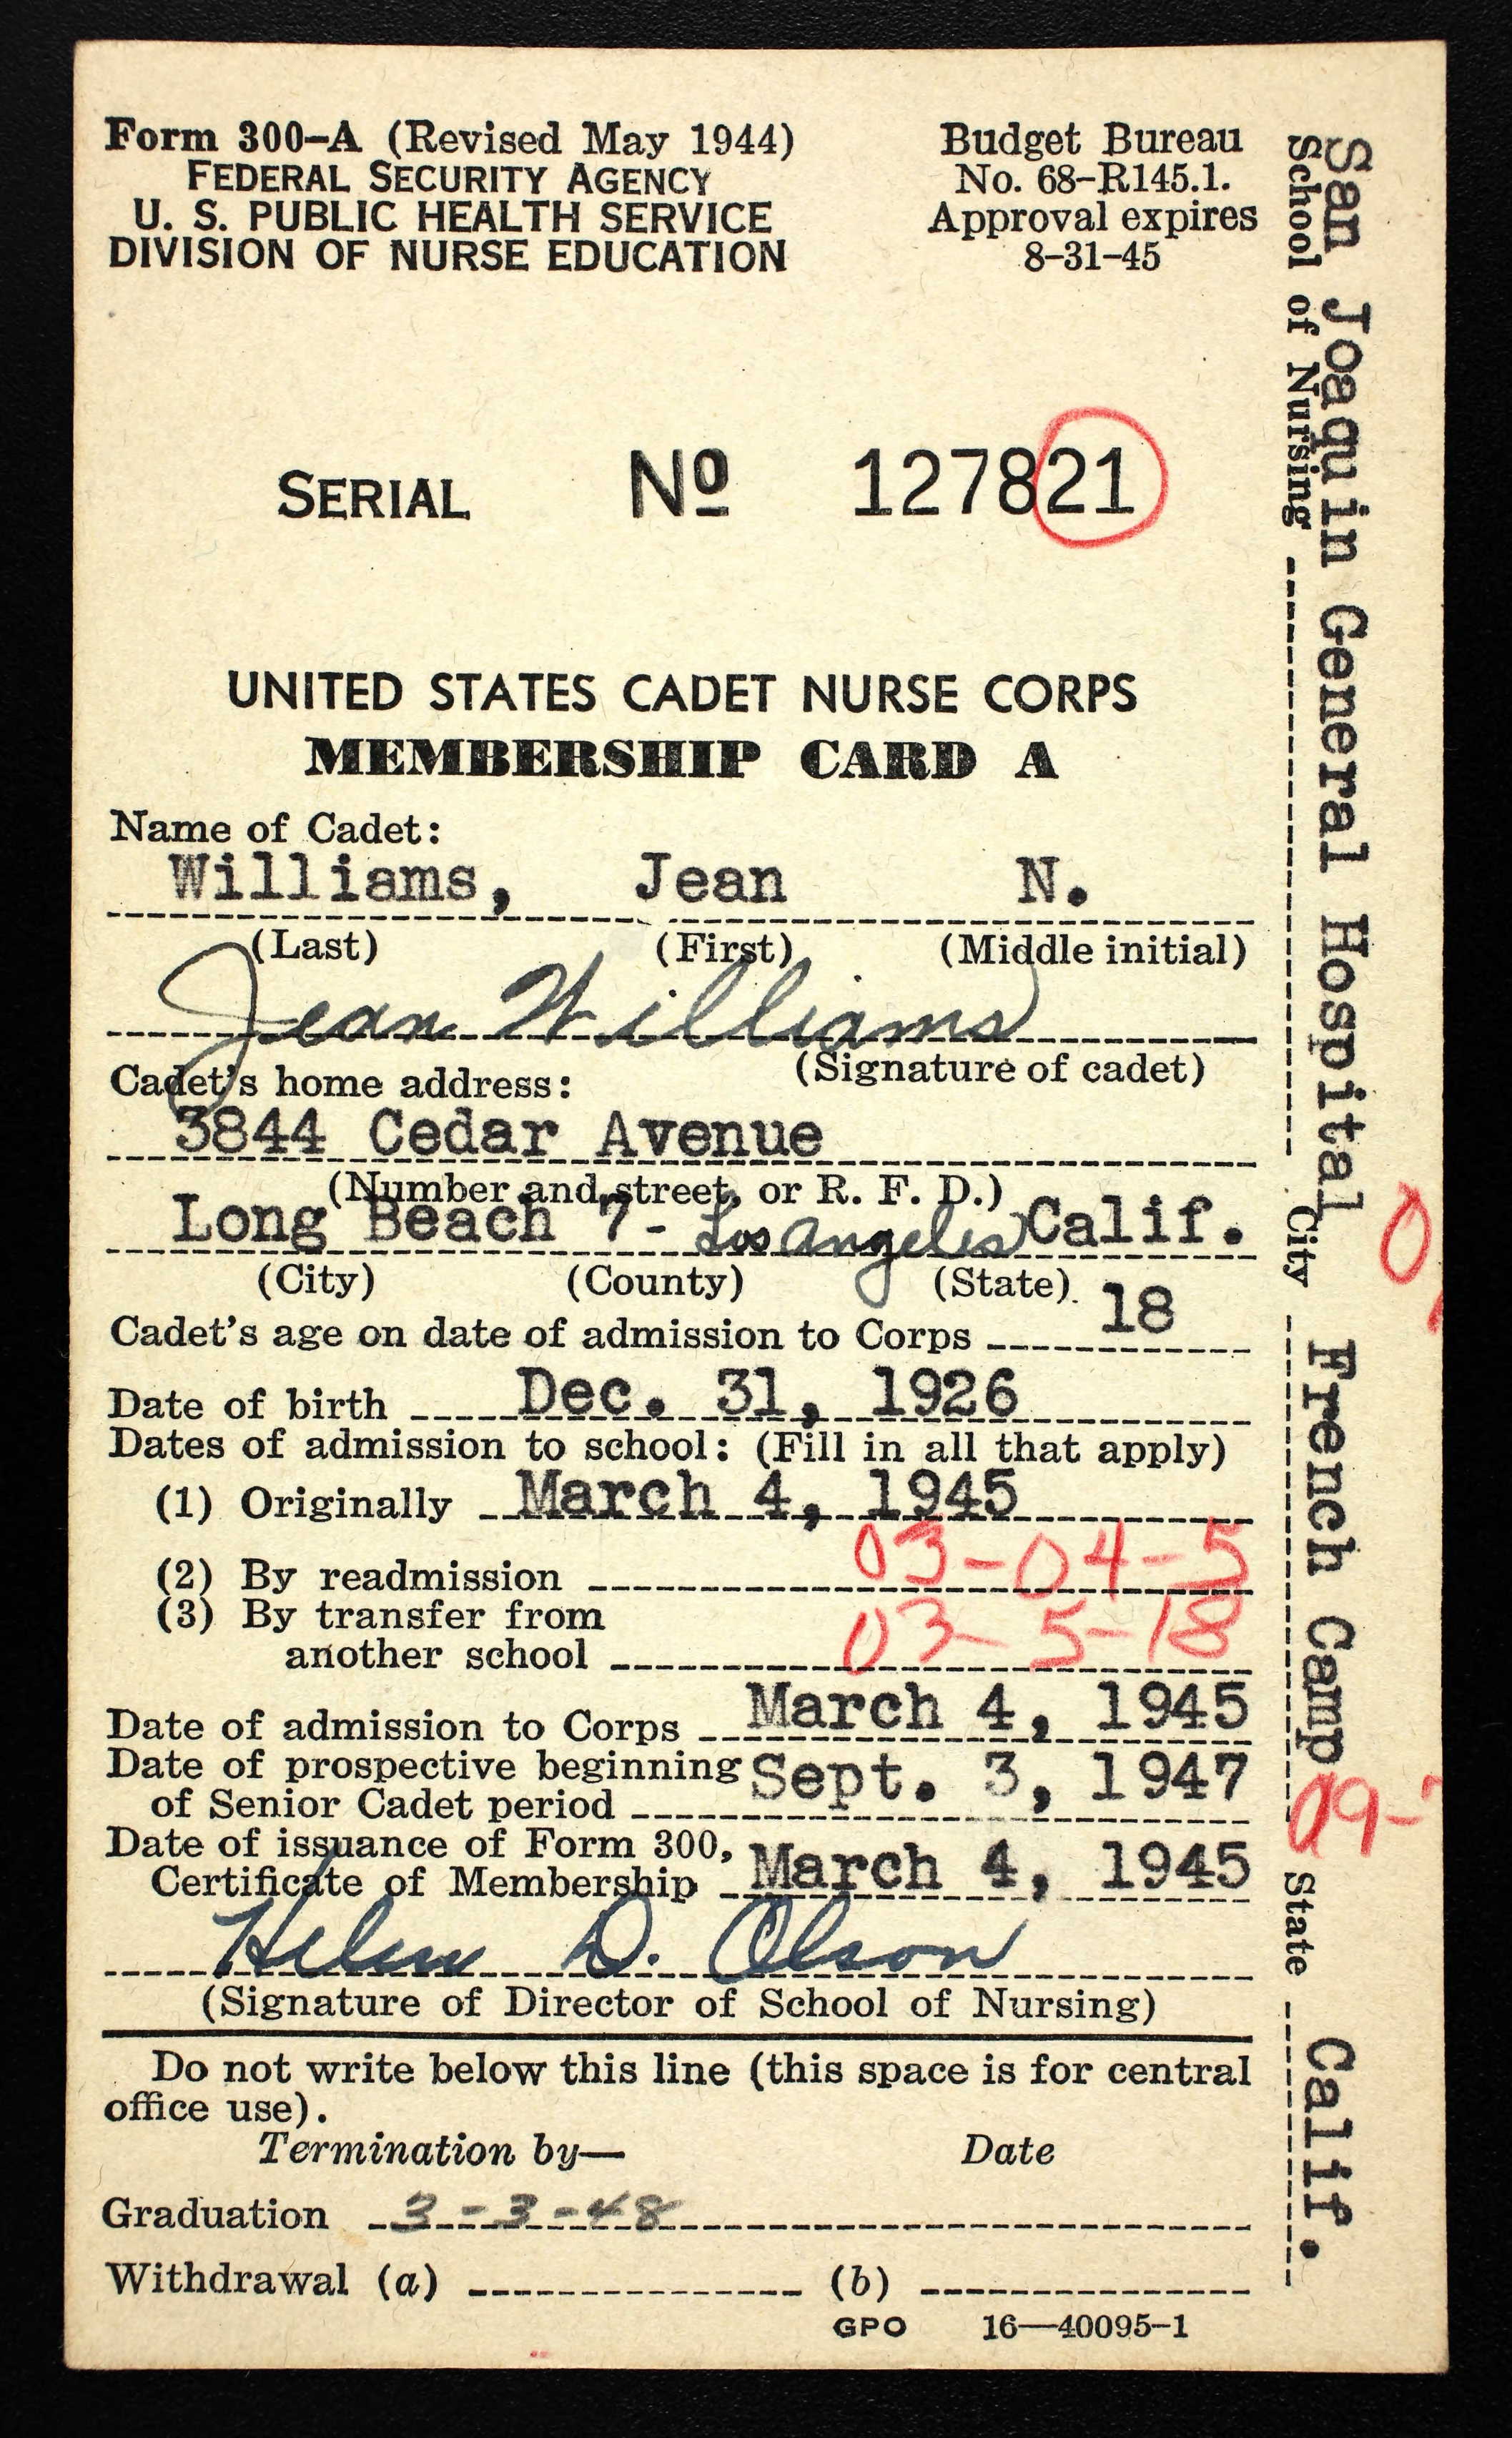 Form 300-A (Revised May 1944)
FEDERAL SECURITY AGENCY
U. S. PUBLIC HEALTH SERVICE
DIVISION OF NURSE EDUCATION
Budget Bureau
No. 68-R145.1.
Approval expires
8-31-45
SERIAL No 127821
UNITED STATES CADET NURSE CORPS
MEMBERSHIP CARD A
Name of Cadet:
Williams, Jean N.
(Last) (First) (Middle initial)
Jean Williams
(Signature of cadet)
Cadet's home address:
3844 Cedar Avenue
(Number and street, or R. F. D.)
Long Beach 7- Los Angeles Calif.
(City) (County) (State)
Cadet's age on date of admission to Corps 18
Date of birth Dec. 31, 1926
Dates of admission to school: (Fill in all that apply)
(1) Originally March 4, 1945
(2) By readmission 03-04-5
(3) By transfer from
another school 03-5-18
Date of admission to Corps March 4, 1945
Date of prospective beginning
of Senior Cadet period Sept. 3, 1947
Date of issuance of Form 300,
Certificate of Membership March 4, 1945
Helen D. Olson
(Signature of Director of School of Nursing)
Do not write below this line (this space is for central
office use).
Termination by— Date
Graduation 3-3-48
Withdrawal (a) (b)
GPO 16—40095-1
San Joaquin General Hospital French Camp Calif.
School of Nursing City State
0
09-